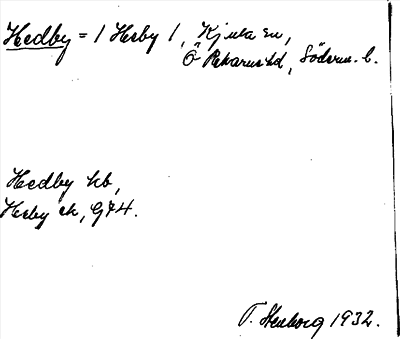 Hedby = / Hesby /, Kjula sn,
Ö Rekarne hd, Söderm. l.
Hedby kb,
Hesby ek, G44.
T. Stenborg 1932.